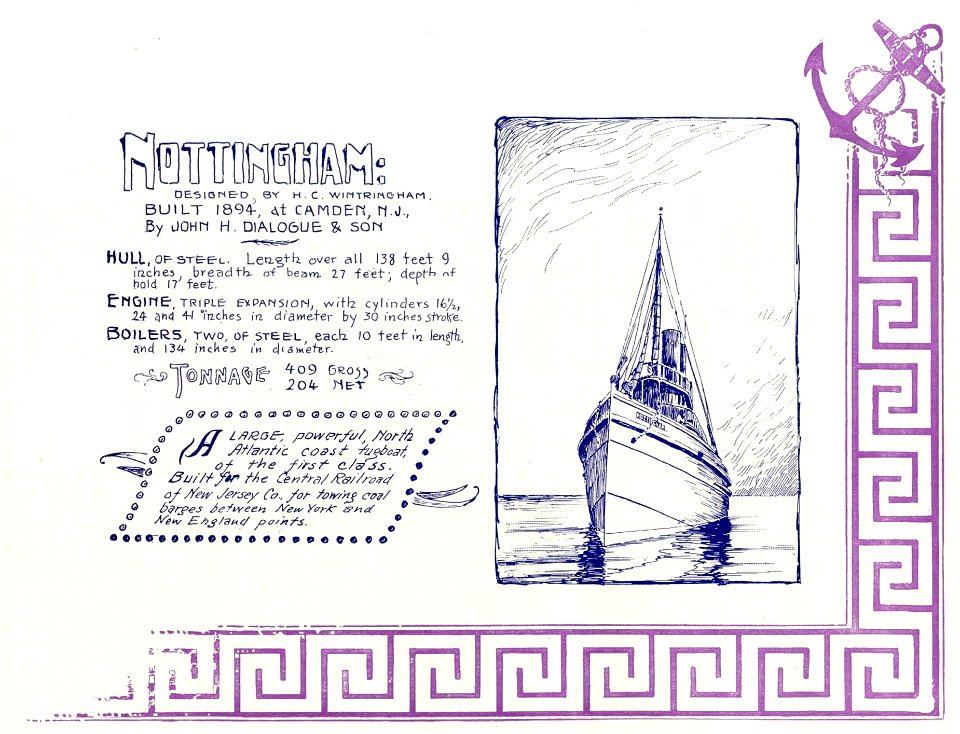 NOTTINGHAM:
DESIGNED, BY H. C. WINTRINGHAM.
BUILT 1894, at CAMDEN, N.J.,
By JOHN H. DIALOGUE & SON
HULL, OF STEEL. Length over all 138 feet 9
inches, breadth of beam 27 feet; depth of
hold 17 feet.
ENGINE, TRIPLE EXPANSION, with cylinders 16½,
24 and 41 inches in diameter by 30 inches stroke.
BOILERS, TWO, OF STEEL, each 10 feet in length,
and 134 inches in diameter.
TONNAGE 409 GROSS
204 NET
A LARGE, powerful, North
Atlantic coast tugboat,
of the first class.
Built for the Central Railroad
of New Jersey Co. for towing coal
barges between New York and
New England points.